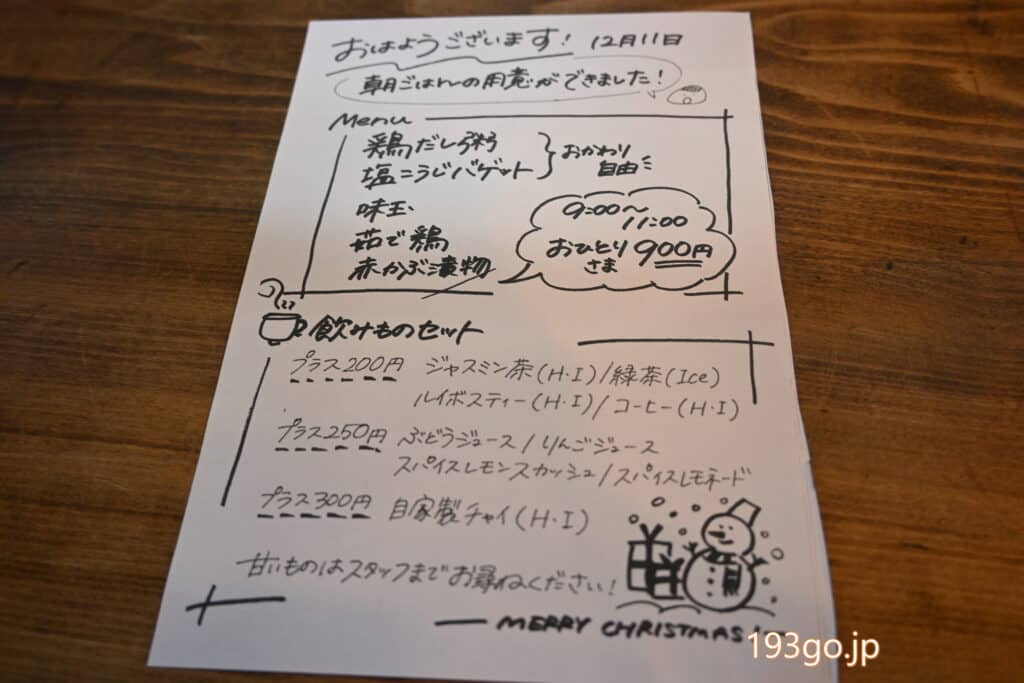 おはようございます! 12月11日
朝ごはんの用意ができました!
Menu
鶏だし粥
塩こうじバゲット
おかわり
自由
味玉
茹で鶏
赤かぶ漬物
9:00〜
11:00
おひとりさま 900円
飲みものセット
プラス200円 ジャスミン茶(H・I)/緑茶(Ice)
ルイボスティー(H・I)/コーヒー(H・I)
プラス250円 ぶどうジュース/りんごジュース
スパイスレモンスカッシュ/スパイスレモネード
プラス300円 自家製チャイ(H・I)
甘いものはスタッフまでお尋ねください!
MERRY CHRISTMAS
193go.jp